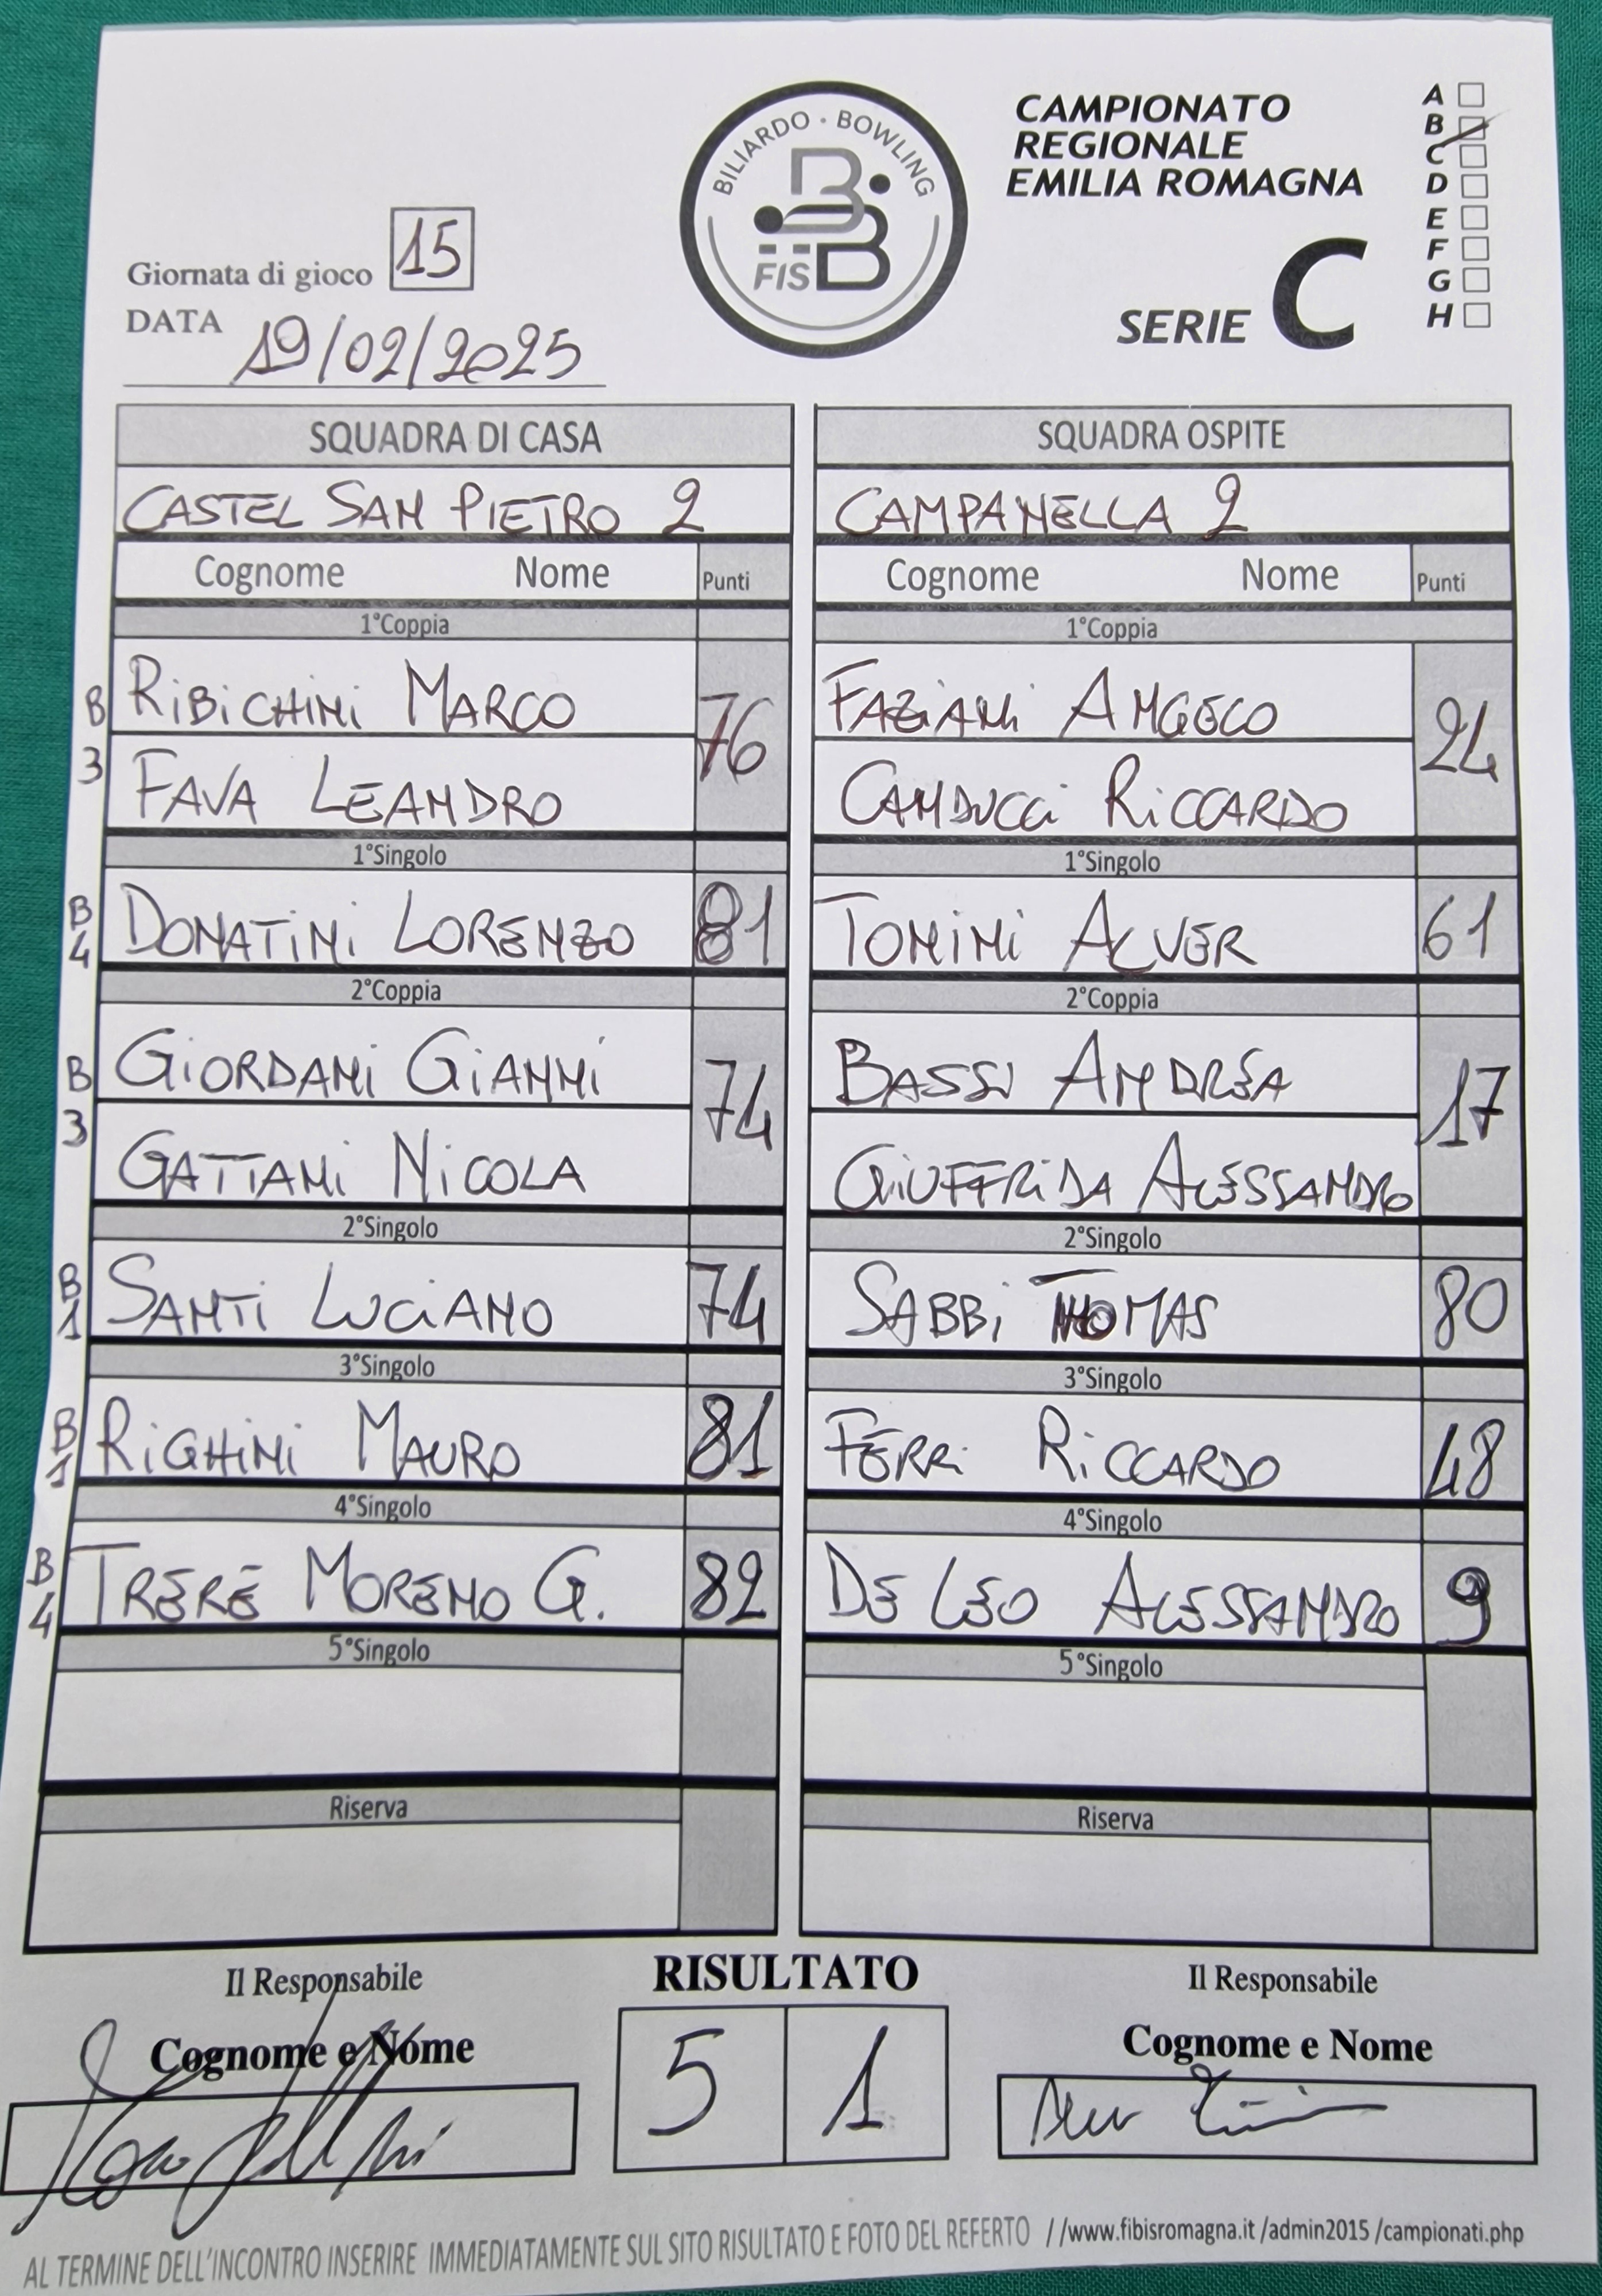 BILIARDO · BOWLING
FISBB
CAMPIONATO
REGIONALE
EMILIA ROMAGNA
SERIE C
A
B
C
D
E
F
G
H
Giornata di gioco 15
DATA 19/02/2025
SQUADRA DI CASA
CASTEL SAN PIETRO 2
Cognome Nome Punti
1°Coppia
B 3
RIBICHINI MARCO 76
FAVA LEANDRO
1°Singolo
B 4 DONATINI LORENZO 81
2°Coppia
B 3
GIORDANI GIANNI 74
GATTANI NICOLA
2°Singolo
B 1 SANTI LUCIANO 74
3°Singolo
B 1 RIGHINI MAURO 81
4°Singolo
B 4 TRERÈ MORENO G. 82
5°Singolo
Riserva
SQUADRA OSPITE
CAMPANELLA 2
Cognome Nome Punti
1°Coppia
FAZIANI ANGELO 24
CANDUCCI RICCARDO
1°Singolo
TONINI ALVER 61
2°Coppia
BASSI ANDREA 17
GIUFFRIDA ALESSANDRO
2°Singolo
SABBI THOMAS 80
3°Singolo
FERRI RICCARDO 48
4°Singolo
DE LEO ALESSANDRO 9
5°Singolo
Riserva
Il Responsabile
Cognome e Nome
RISULTATO
5 1
Il Responsabile
Cognome e Nome
AL TERMINE DELL'INCONTRO INSERIRE IMMEDIATAMENTE SUL SITO RISULTATO E FOTO DEL REFERTO //www.fibisromagna.it /admin2015 /campionati.php